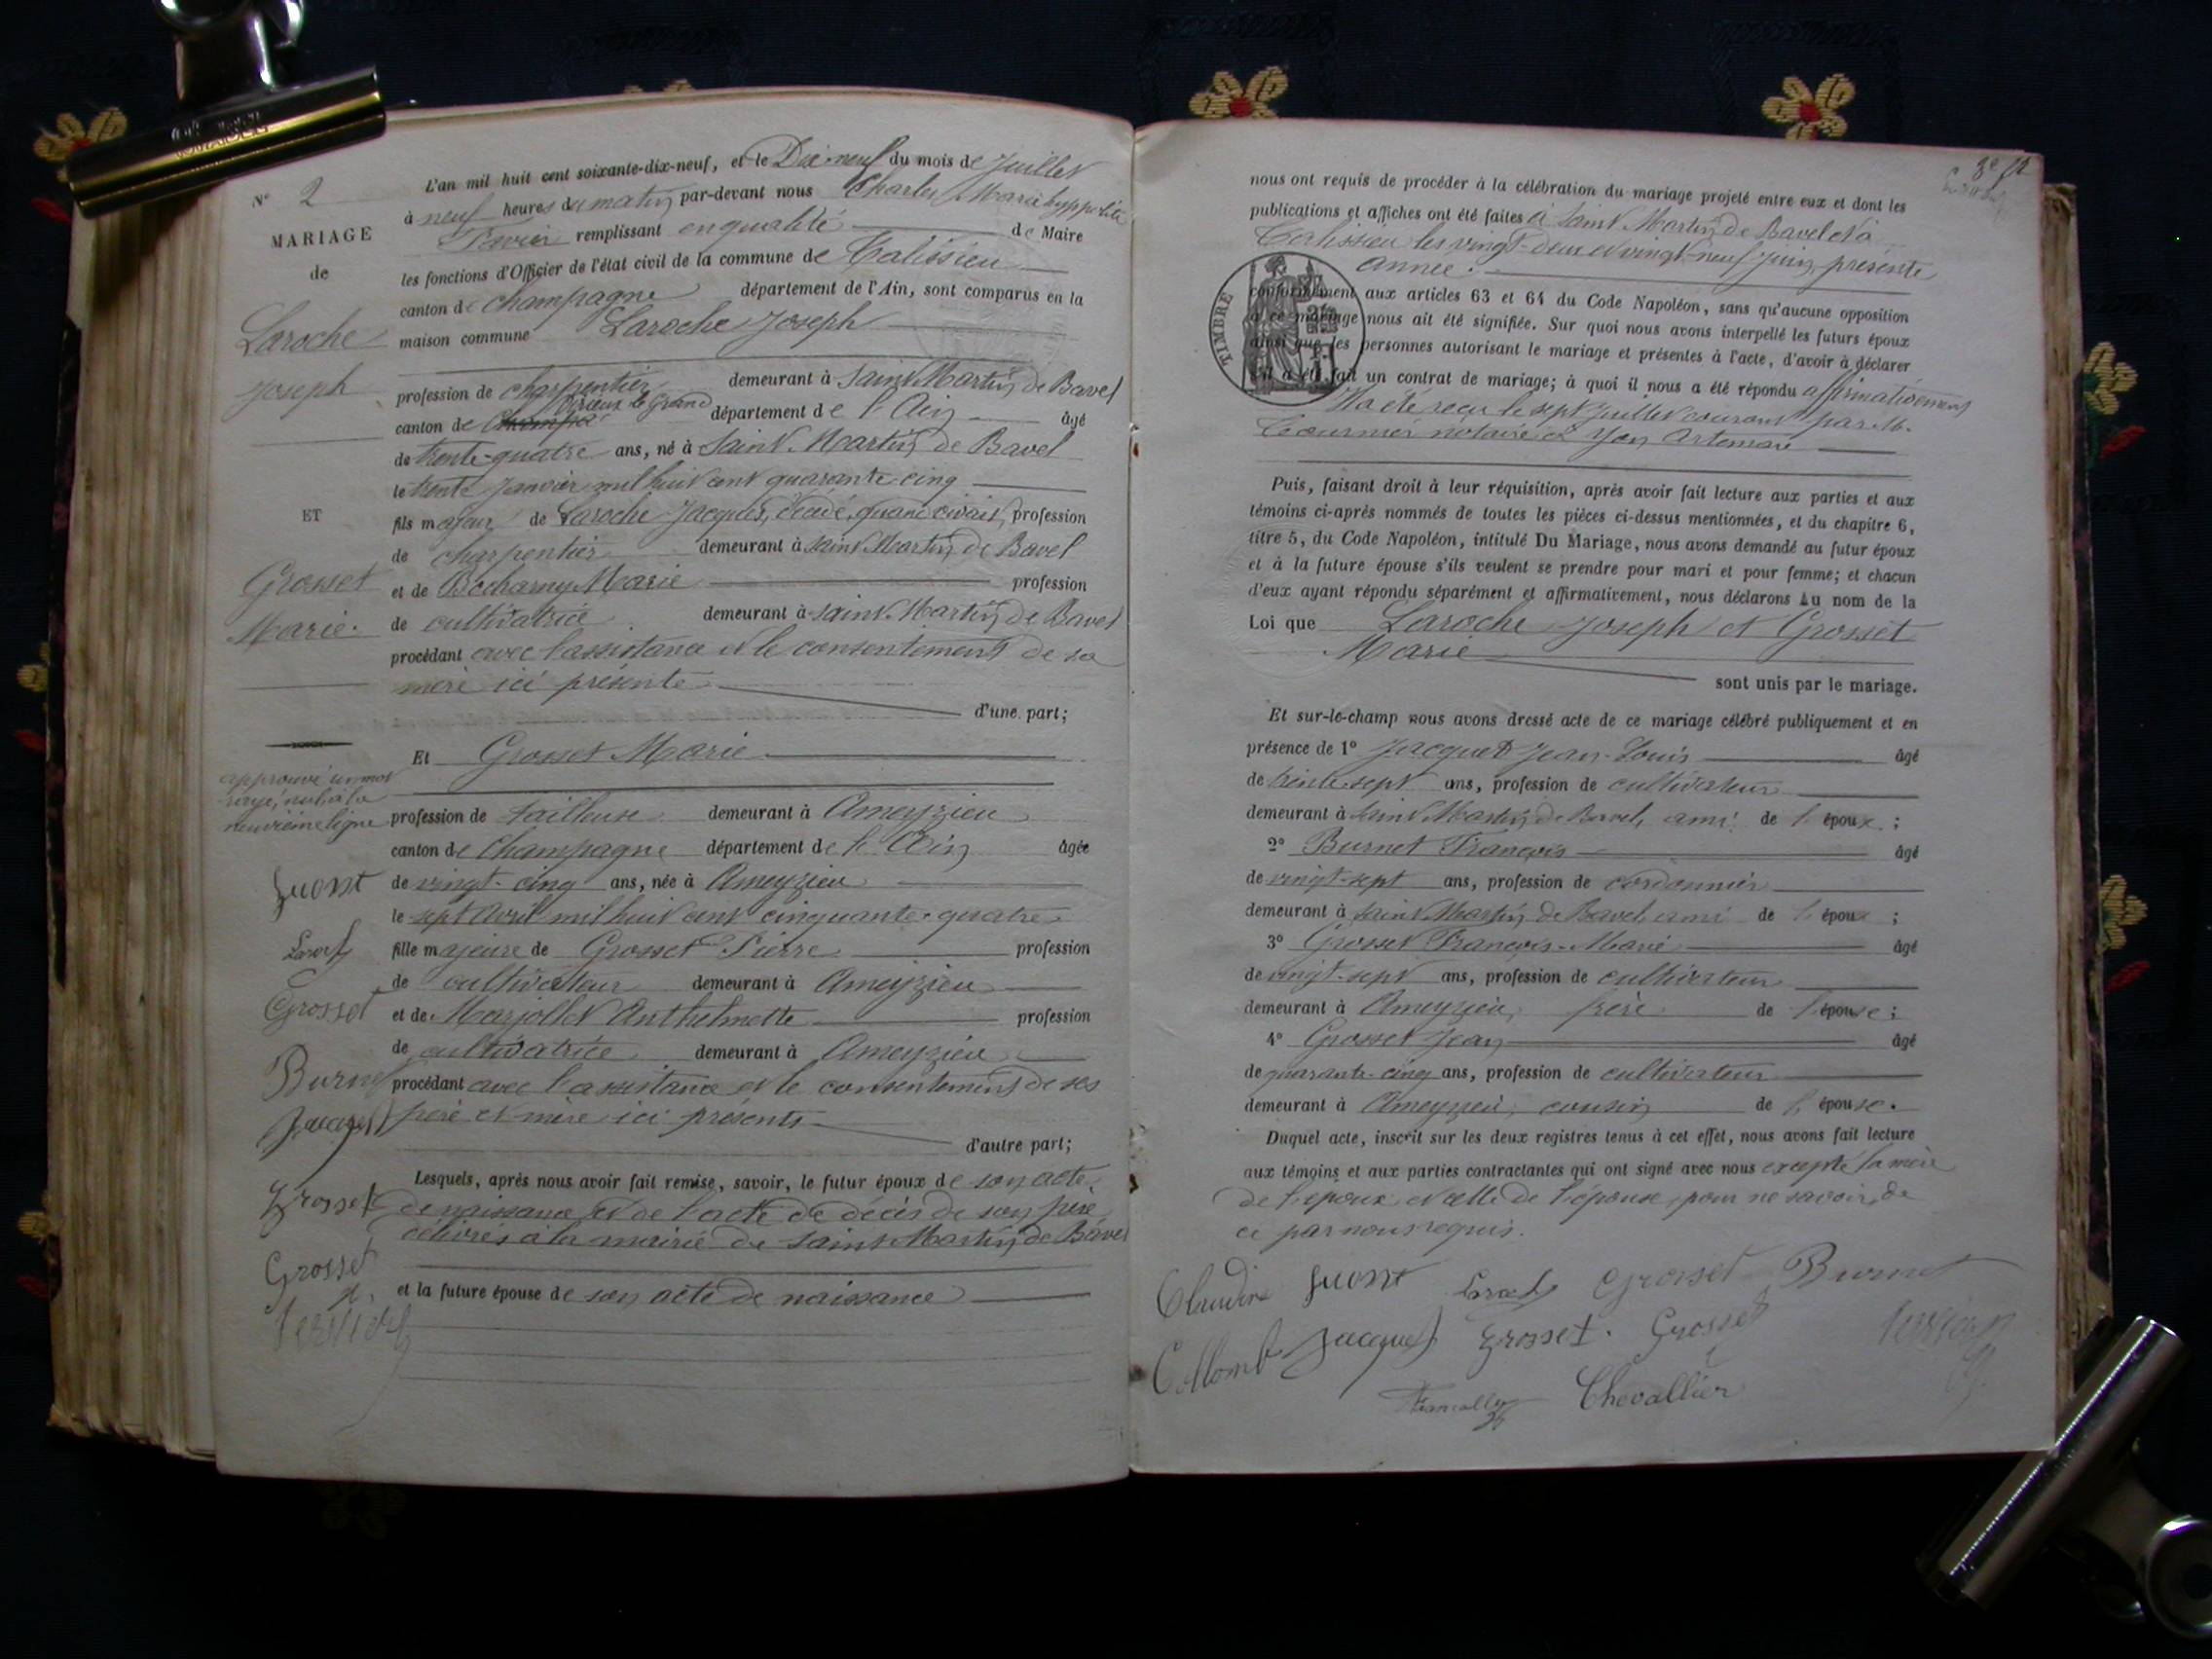 N° 2
MARIAGE
de
Laroche
Joseph
ET
Grosset
Marie.
approuvé un mot
rayé, nul à la
neuvième ligne
Grosset
Burnet
Jacquet
Grosset
Grosset
L'an mil huit cent soixante-dix-neuf, et le Dix-neuf du mois de Juillet
à neuf heures du matin par-devant nous Charles Marie hyppolite
remplissant en qualité de Maire
les fonctions d'Officier de l'état civil de la commune de Talissieu
canton de Champagne département de l'Ain, sont comparus en la
maison commune Laroche Joseph
profession de charpentier demeurant à Saint Martin de Bavel
Virieux le Grand
canton de département de l'Ain âgé
de trente-quatre ans, né à Saint Martin de Bavel
le trente Janvier mil huit cent quarante-cinq
fils majeur de Laroche Jacques, décédé, quand vivait, profession
de charpentier demeurant à Saint Martin de Bavel
et de Marie profession
de cultivatrice demeurant à Saint Martin de Bavel
procédant avec l'assistance et le consentement de sa
mère ici présente
d'une part;
Et Grosset Marie
profession de tailleuse demeurant à Ameyzieu
canton de Champagne département de l'Ain âgée
de vingt-cinq ans, née à Ameyzieu
le sept Avril mil huit cent cinquante-quatre
fille majeure de Grosset Pierre profession
de cultivateur demeurant à Ameyzieu
et de Marjollet Anthelmette profession
de cultivatrice demeurant à Ameyzieu
procédant avec l'assistance et le consentement de ses
père et mère ici présents
d'autre part;
Lesquels, après nous avoir fait remise, savoir, le futur époux de son acte
de naissance et de l'acte de décès de son père
délivrés à la mairie de Saint Martin de Bavel
et la future épouse de son acte de naissance
nous ont requis de procéder à la célébration du mariage projeté entre eux et dont les
publications et affiches ont été faites à Saint Martin de Bavel et à
Talissieu les vingt-deux et vingt-neuf Juin présente
année.
TIMBRE
conformément aux articles 63 et 64 du Code Napoléon, sans qu'aucune opposition
à ce mariage nous ait été signifiée. Sur quoi nous avons interpellé les futurs époux
ainsi que les personnes autorisant le mariage et présentes à l'acte, d'avoir à déclarer
s'il a été fait un contrat de mariage; à quoi il nous a été répondu affirmativement
Il a été reçu le sept Juillet courant par M.
notaire Artemare
Puis, faisant droit à leur réquisition, après avoir fait lecture aux parties et aux
témoins ci-après nommés de toutes les pièces ci-dessus mentionnées, et du chapitre 6,
titre 5, du Code Napoléon, intitulé Du Mariage, nous avons demandé au futur époux
et à la future épouse s'ils veulent se prendre pour mari et pour femme; et chacun
d'eux ayant répondu séparément et affirmativement, nous déclarons Au nom de la
Loi que Laroche Joseph et Grosset
Marie
sont unis par le mariage.
Et sur-le-champ nous avons dressé acte de ce mariage célébré publiquement et en
présence de 1° Jacquet Jean-Louis âgé
de trente-sept ans, profession de cultivateur
demeurant à Saint Martin de Bavel, ami de l'époux;
2° Burnet François âgé
de vingt-sept ans, profession de cordonnier
demeurant à Saint Martin de Bavel, ami de l'époux;
3° Grosset François-Marie âgé
de vingt-sept ans, profession de cultivateur
demeurant à Ameyzieu, frère de l'épouse;
4° Grosset Jean âgé
de quarante-cinq ans, profession de cultivateur
demeurant à Ameyzieu, cousin de l'épouse.
Duquel acte, inscrit sur les deux registres tenus à cet effet, nous avons fait lecture
aux témoins et aux parties contractantes qui ont signé avec nous excepté la mère
de l'époux et celle de l'épouse, pour ne savoir, de
ce par nous requis.
Claudine Grosset Burnet
Collomb Jacquet Grosset. Grosset
Chevallier